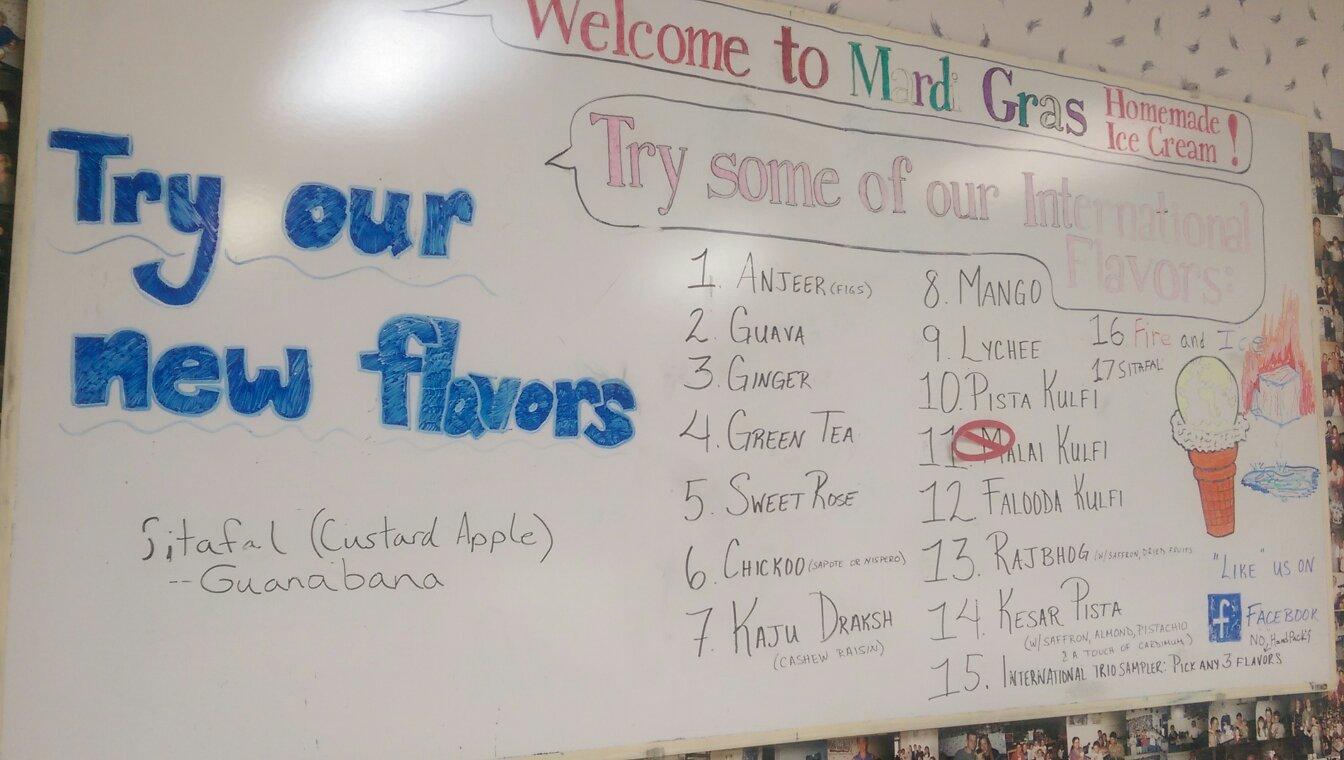 Welcome to Mardi Gras Homemade
Ice Cream!
Try some of our International
Flavors:
Try our
new flavors
Sitafal (Custard Apple)
-- Guanabana
1. ANJEER (FIGS)
2. GUAVA
3. GINGER
4. GREEN TEA
5. SWEET ROSE
6. CHICKOO (SAPOTE OR NISPERO)
7. KAJU DRAKSH
(CASHEW RAISIN)
8. MANGO
9. LYCHEE
10. PISTA KULFI
11. MALAI KULFI
12. FALOODA KULFI
13. RAJBHOG (W/SAFFRON, DRIED FRUITS
14. KESAR PISTA
(W/SAFFRON, ALMOND, PISTACHIO
& A TOUCH OF CARDIMUM)
15. INTERNATIONAL TRIO SAMPLER: PICK ANY 3 FLAVORS
16 Fire and Ice
17 SITAFAL
"LIKE" US ON
f FACEBOOK
NO, HandPack's